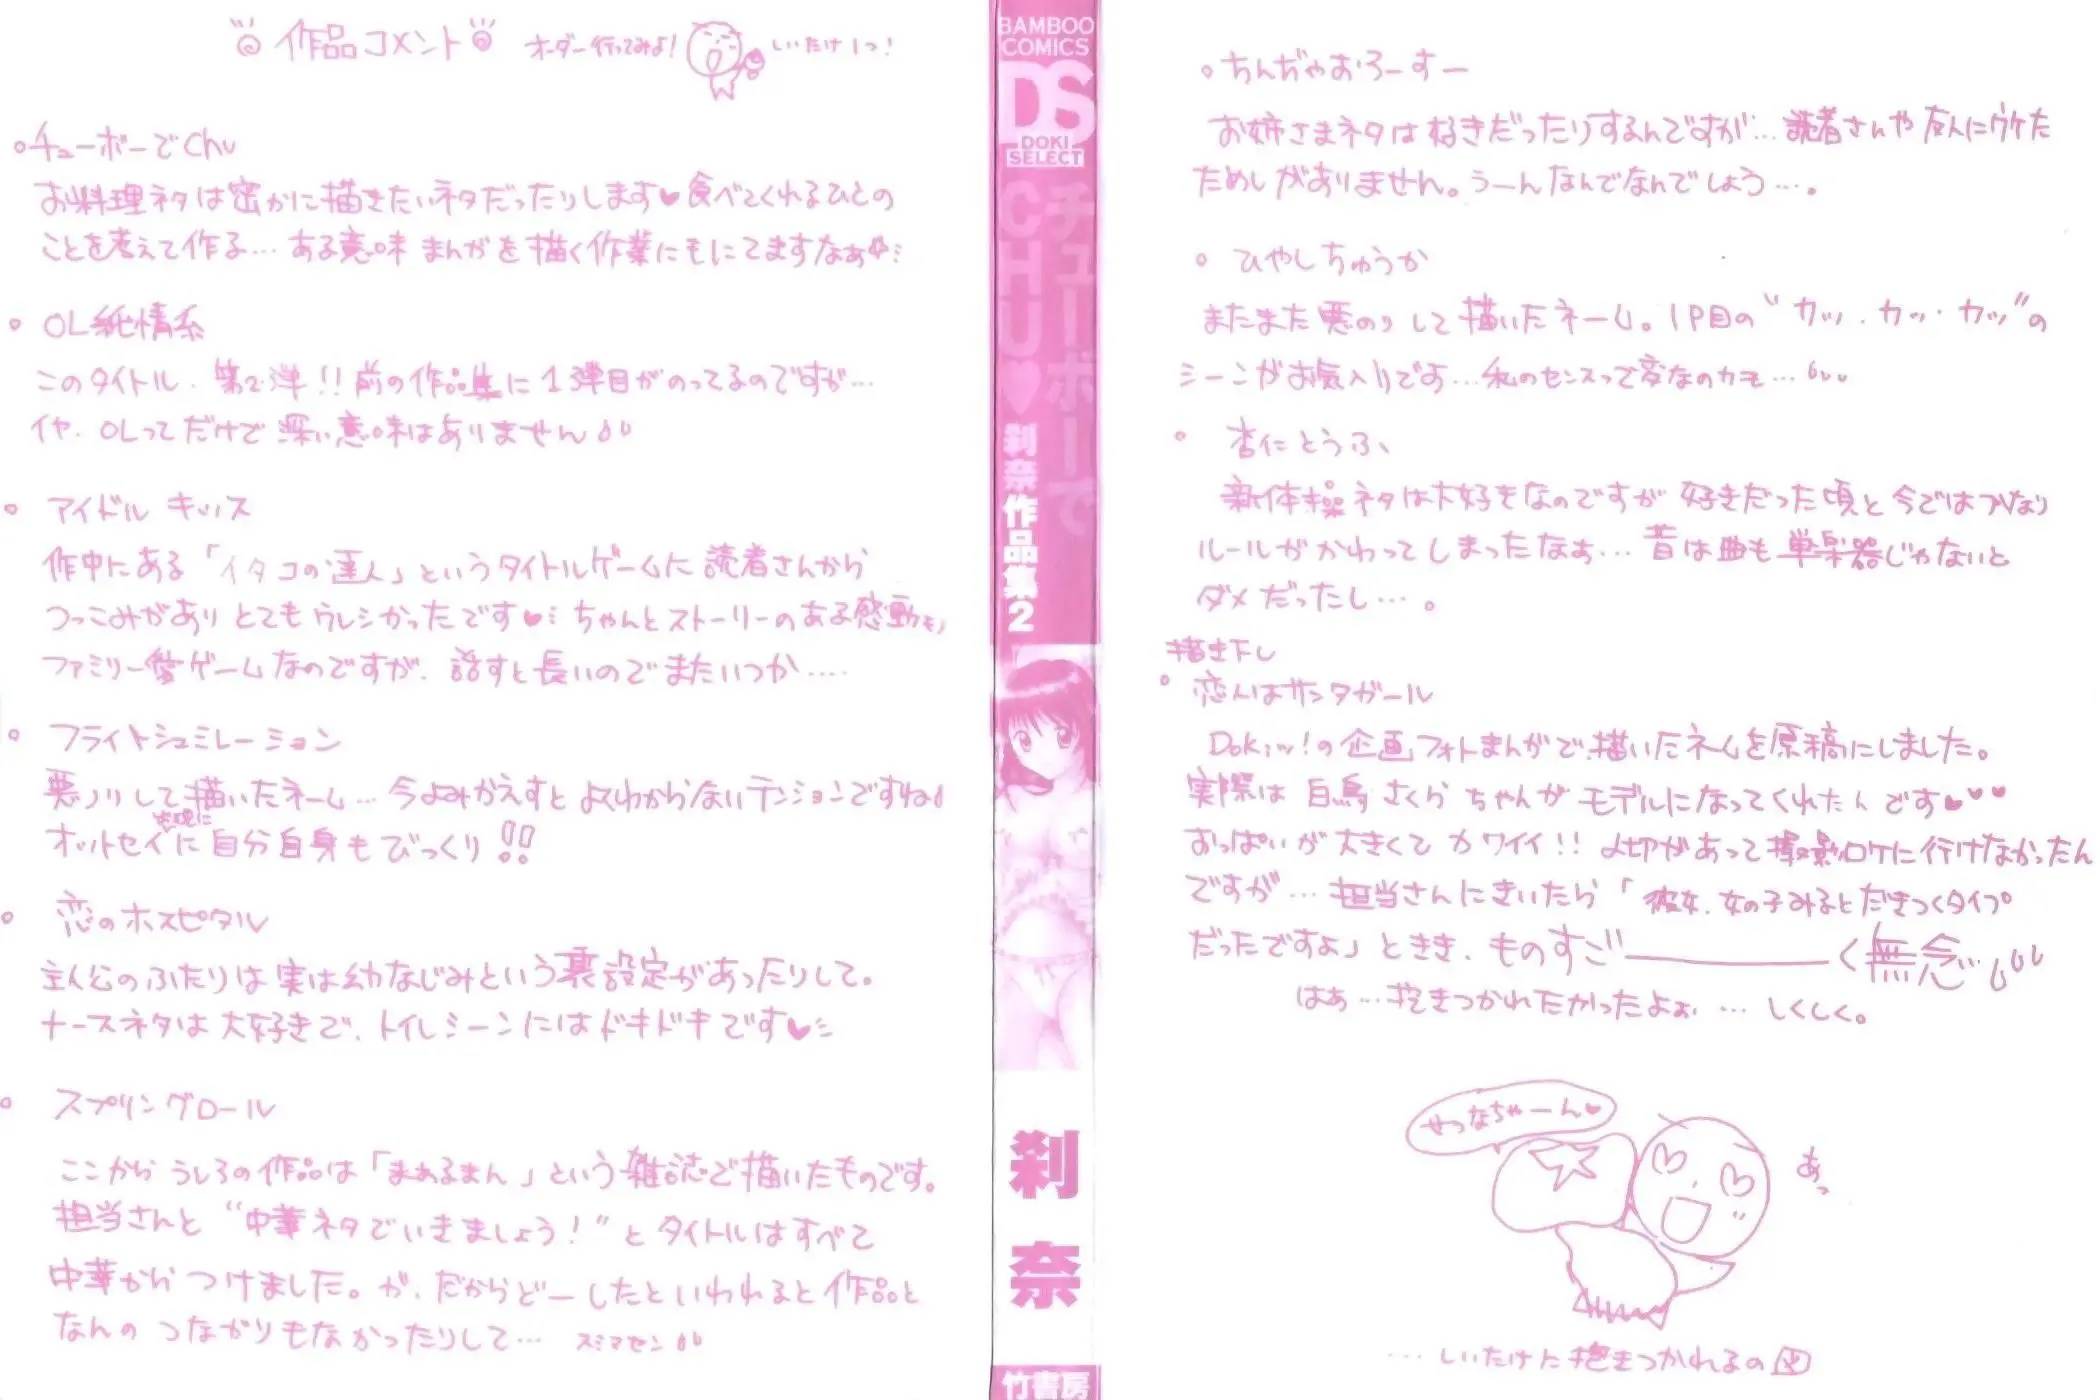 作品コメント
オーダー行ってみよ!
しいたけ1つ!
。チューボーでChu
お料理ネタは密かに描きたいネタだったりします♥食べてくれるひとの
ことを考えて作る…ある意味まんがを描く作業にもにてますなぁ
。OL純情系
このタイトル、第2弾!!前の作品集に1弾目がのってるのですが…
イヤ、OLってだけで深い意味はありません
。アイドルキッス
作中にある「イタコの達人」というタイトルゲームに読者さんから
つっこみがありとてもウレシかったです♥ちゃんとストーリーのある感動モノ
ファミリー愛ゲームなのですが、話すと長いのでまたいつか‥‥
。フライトシュミレーション
悪ノリして描いたネーム…今よみかえすとよくわからないテンションですね
オットセイに自分自身もびっくり!!
。恋のホスピタル
主人公のふたりは実は幼なじみという裏設定があったりして。
ナースネタは大好きで、トイレシーンにはドキドキです♥
。スプリングロール
ここからうしろの作品は「まぁるまん」という雑誌で描いたものです。
担当さんと“中華ネタでいきましょう!”とタイトルはすべて
中華からつけました。が、だからどーしたといわれると作品と
なんのつながりもなかったりして… スミマセン
BAMBOO
COMICS
DS
DOKI
SELECT
チューボーで
CHU♥
刹奈作品集2
刹奈
竹書房
。ちんぢゃおろーすー
お姉さまネタは好きだったりするんですが…読者さんや友人にウケた
ためしがありません。うーんなんでなんでしょう…。
。ひやしちゅうか
またまた悪のりして描いたネーム。1P目の“カッ・カッ・カッ”の
シーンがお気入りです…私のセンスって変なのカモ…
。杏仁とうふ
新体操ネタは大好きなのですが好きだった頃と今ではかなり
ルールがかわってしまったなぁ…昔は曲も単楽器じゃないと
ダメだったし…。
描き下し
。恋人はサンタガール
Dokiッ!の企画フォトまんがで描いたネームを原稿にしました。
実際は白鳥さくらちゃんがモデルになってくれたんです♥♥♥
おっぱいが大きくてカワイイ!!〆切があって撮影ロケに行けなかったん
ですが…担当さんにきいたら「彼女、女の子みるとだきつくタイプ
だったですよ」ときき、ものすごーーーく無念…
はぁ…抱きつかれたかったよぉ…しくしく。
せつなちゃーん♥
あっ
…しいたけに抱きつかれるの図